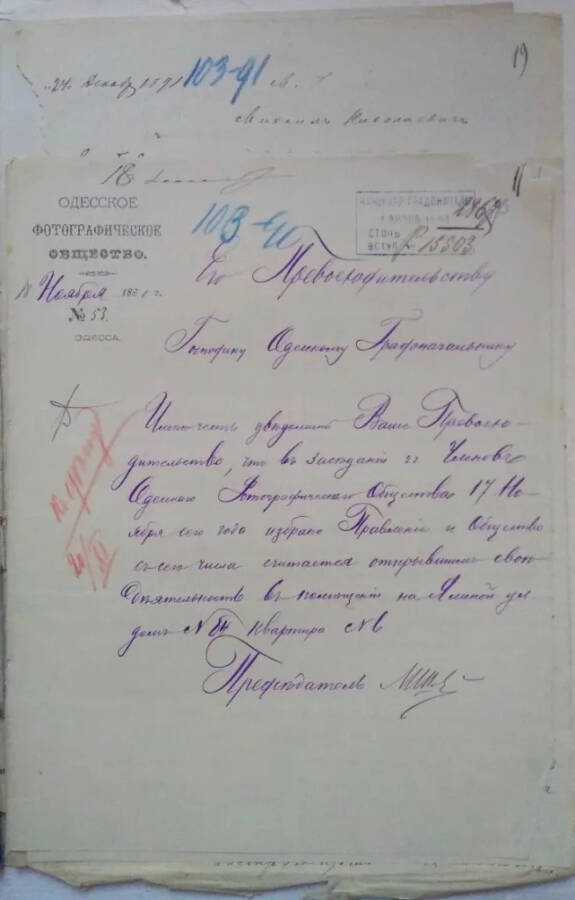 19
24 Декабр 1891 103-91
Михаилъ Николаевичъ
18
11
ОДЕССКОЕ
ФОТОГРАФИЧЕСКОЕ
ОБЩЕСТВО.
18 Ноября 189 г.
№ 53.
ОДЕССА.
СТОЛЪ
ВСТУП. 15303
Его Превосходительству
Господину Одесскому Градоначальнику
Имѣю честь увѣдомить Ваше Превосхо-
дительство, что въ засѣданіи гг Членовъ
Одесскаго Фотографическаго Общества 17 Но-
ября сего года избрано Правленіе и Общество
съ сего числа считается открывшимъ свою
Дѣятельность въ помѣщеніи на Ямской ул.
домъ № квартира №6
Къ
20/XI
Предсѣдатель